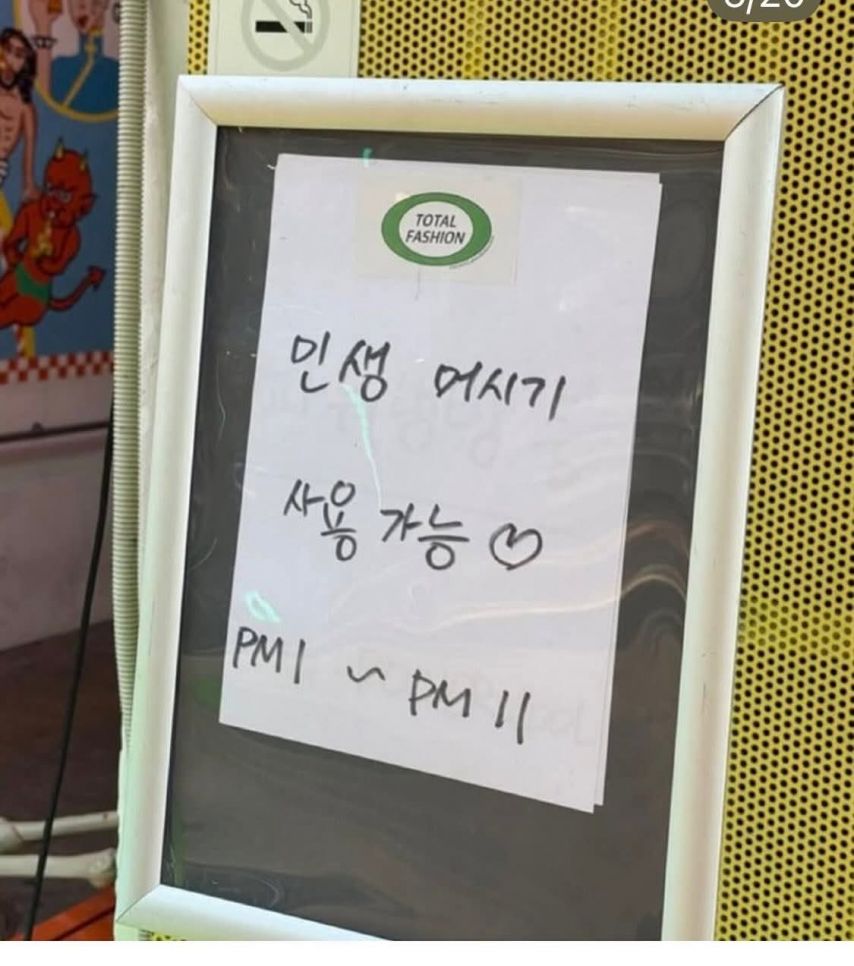 TOTAL
FASHION
민생 머시기
사용 가능♡
PM 1 ~ PM 11